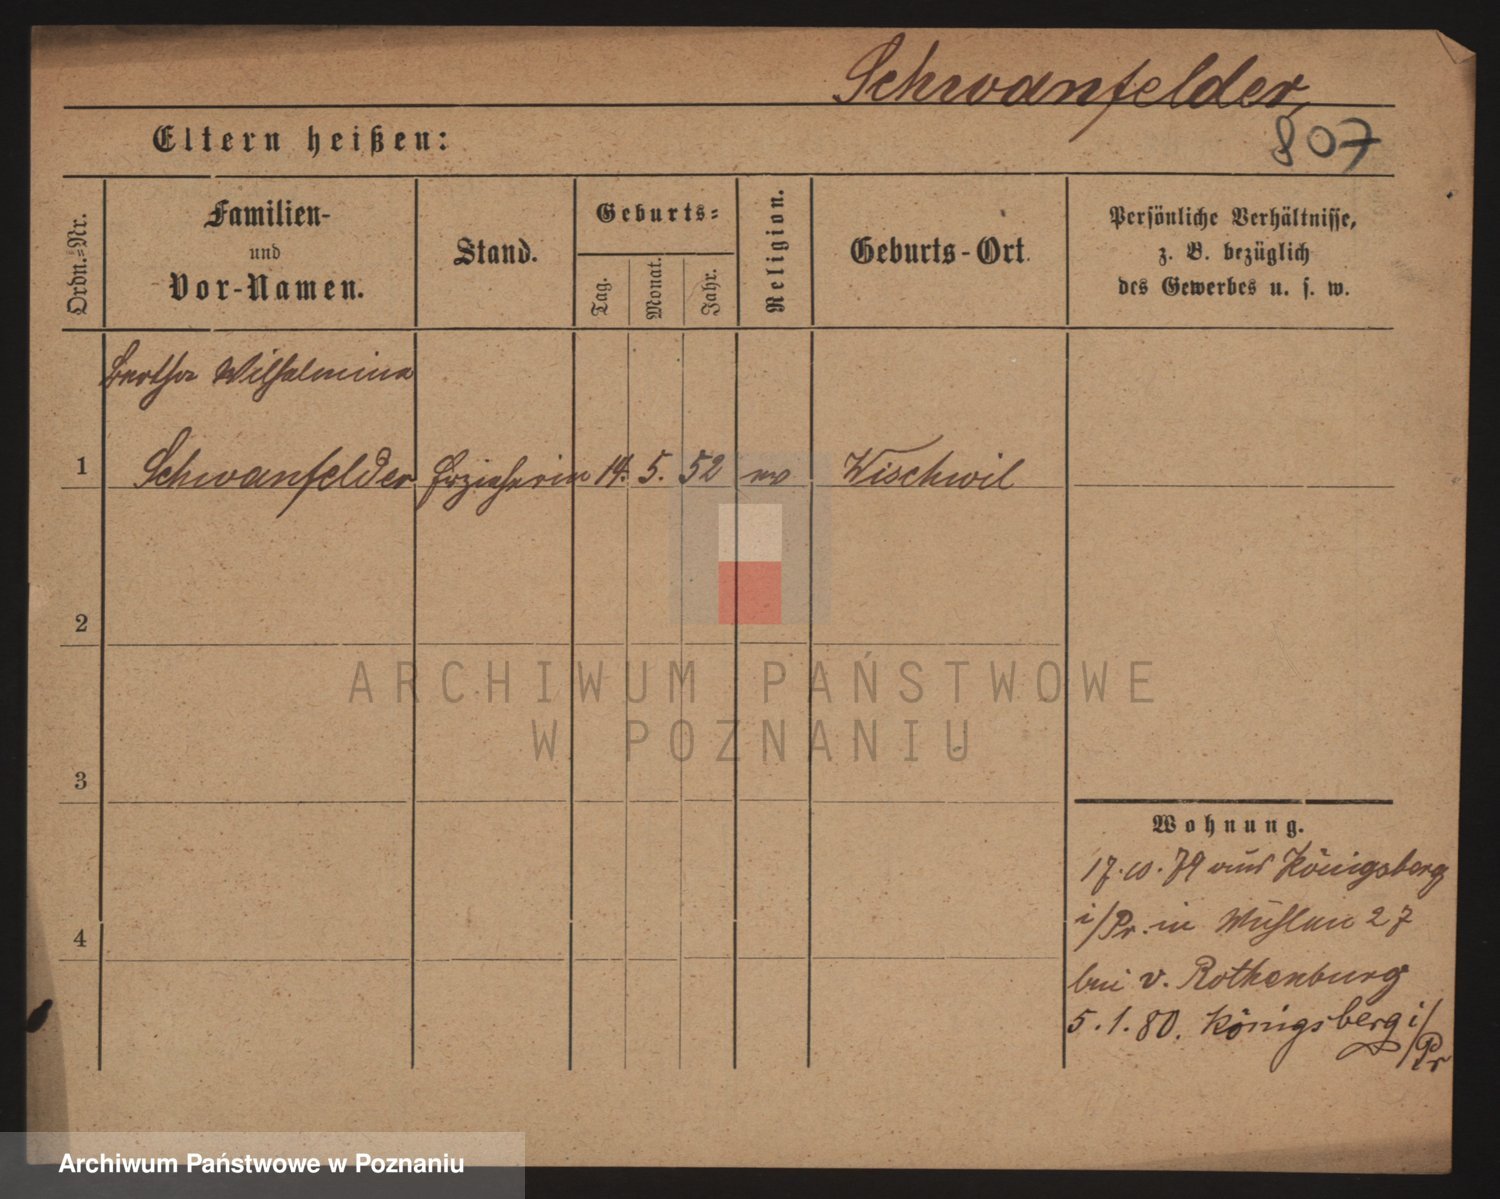 Schwanfelder,
Eltern heißen:
807
Ordn.-Nr.
Familien-
und
Vor-Namen.
Stand.
Geburts-
Tag.
Monat.
Jahr.
Religion.
Geburts-Ort.
Persönliche Verhältnisse,
z. B. bezüglich
des Gewerbes u. s. w.
Bertha Wilhelmine
1 Schwanfelder Erzieherin 14. 5. 52 ev Wischwil
2
3
4
Wohnung.
17.10.79 aus Königsberg
i/Pr. in Mühlen 27
bei v. Rothenburg
5.1.80. Königsberg i/
Pr
ARCHIWUM PAŃSTWOWE
W POZNANIU
Archiwum Państwowe w Poznaniu